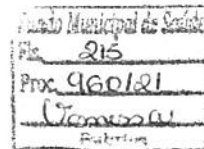 Fundo Municipal de Saúde
Fls. 215
Proc. 960/21
Vanessa
Rubrica